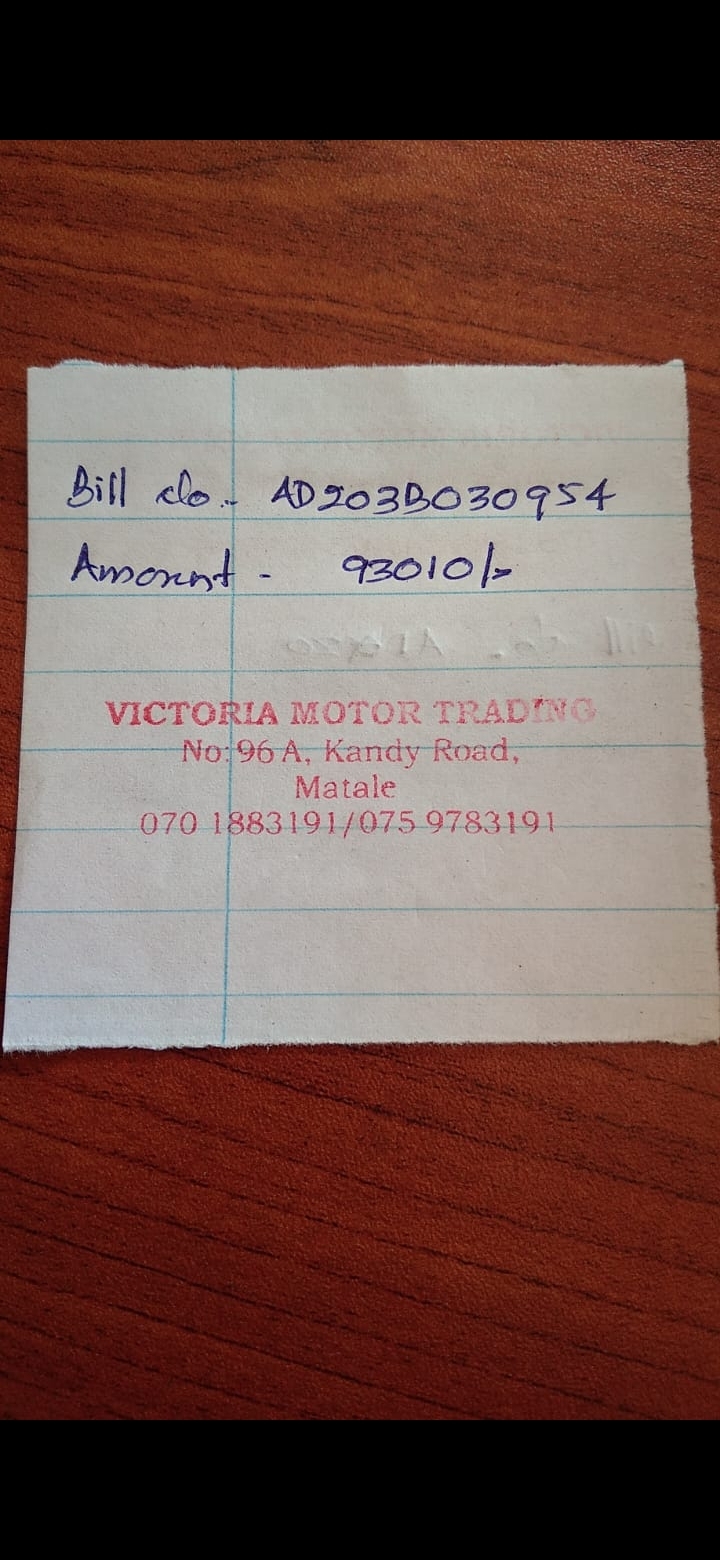 Bill No.- AD203B030954
Amount - 93010/=
VICTORIA MOTOR TRADING
No: 96 A, Kandy Road,
Matale
070 1883191/075 9783191